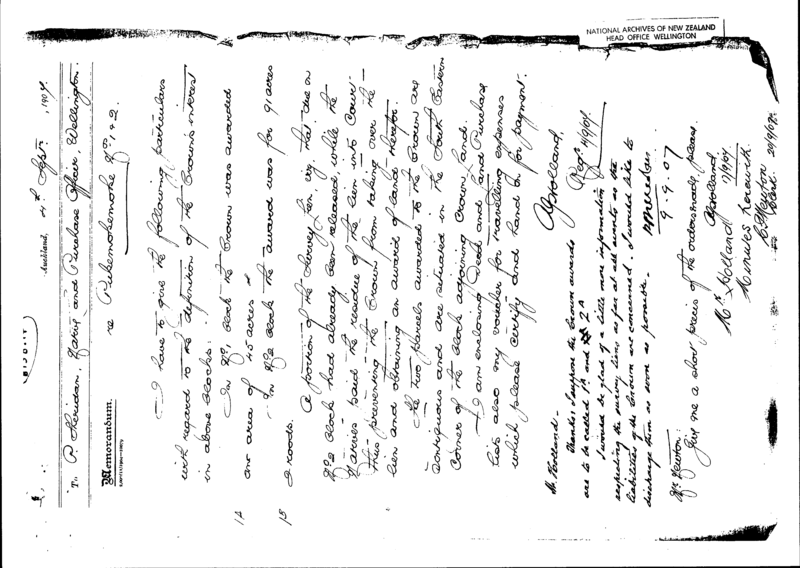 NATIONAL ARCHIVES OF NEW ZEALAND
HEAD OFFICE WELLINGTON
Auckland, 4th Septr, 1907.
To P. Sheridan, Native Land Purchase Officer, Wellington.
Memorandum.
re Pukemokemoke No 1 & 2.
I have to give the following particulars
with regard to the definition of the Crown's interest
in above blocks:
1A In No 1 block the Crown was awarded
an area of 45 acres
1B In No 2 block the award was for 91 acres
2 roods.
A portion of the survey lien, viz that due on
No 2 block had already been released, while the
Natives paid the residue of the lien into Court
thus preventing the Crown from taking over the
lien and obtaining an award of land therefor.
The two parcels awarded to the Crown are
contiguous and are situated in the South Eastern
corner of the block adjoining Crown land.
I am enclosing Deed and Land Purchase
also my voucher for travelling expenses
which please certify and hand on for payment.
Mr. Holland.
Thanks: I suppose the Crown awards
are to be called 1A and 2A
I would be glad of a little more information
respecting the survey liens as far at all events as the
liabilities of the Crown are concerned. I would like to
discharge them as soon as possible.
9.9.07
Mr Newton:
Give me a short precis of the orders made, please.
Mr Holland
Minutes herewith